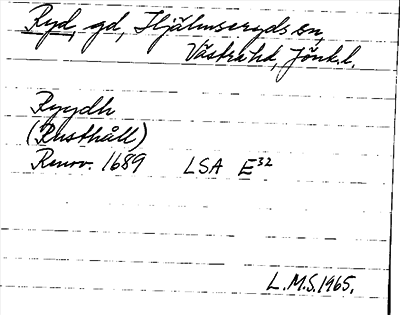 Ryd, gd, Hjälmseryds sn,
Västra hd, Jönk.l.
Ryydh
(Rusthåll)
Renov. 1689 LSA E32
L.M.S.1965.